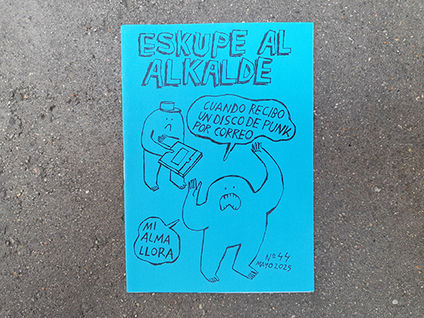 ESKUPE AL
ALKALDE
CUANDO RECIBO
UN DISCO DE PUNK
POR CORREO
MI
ALMA
LLORA
Nº 44
MAYO 2025